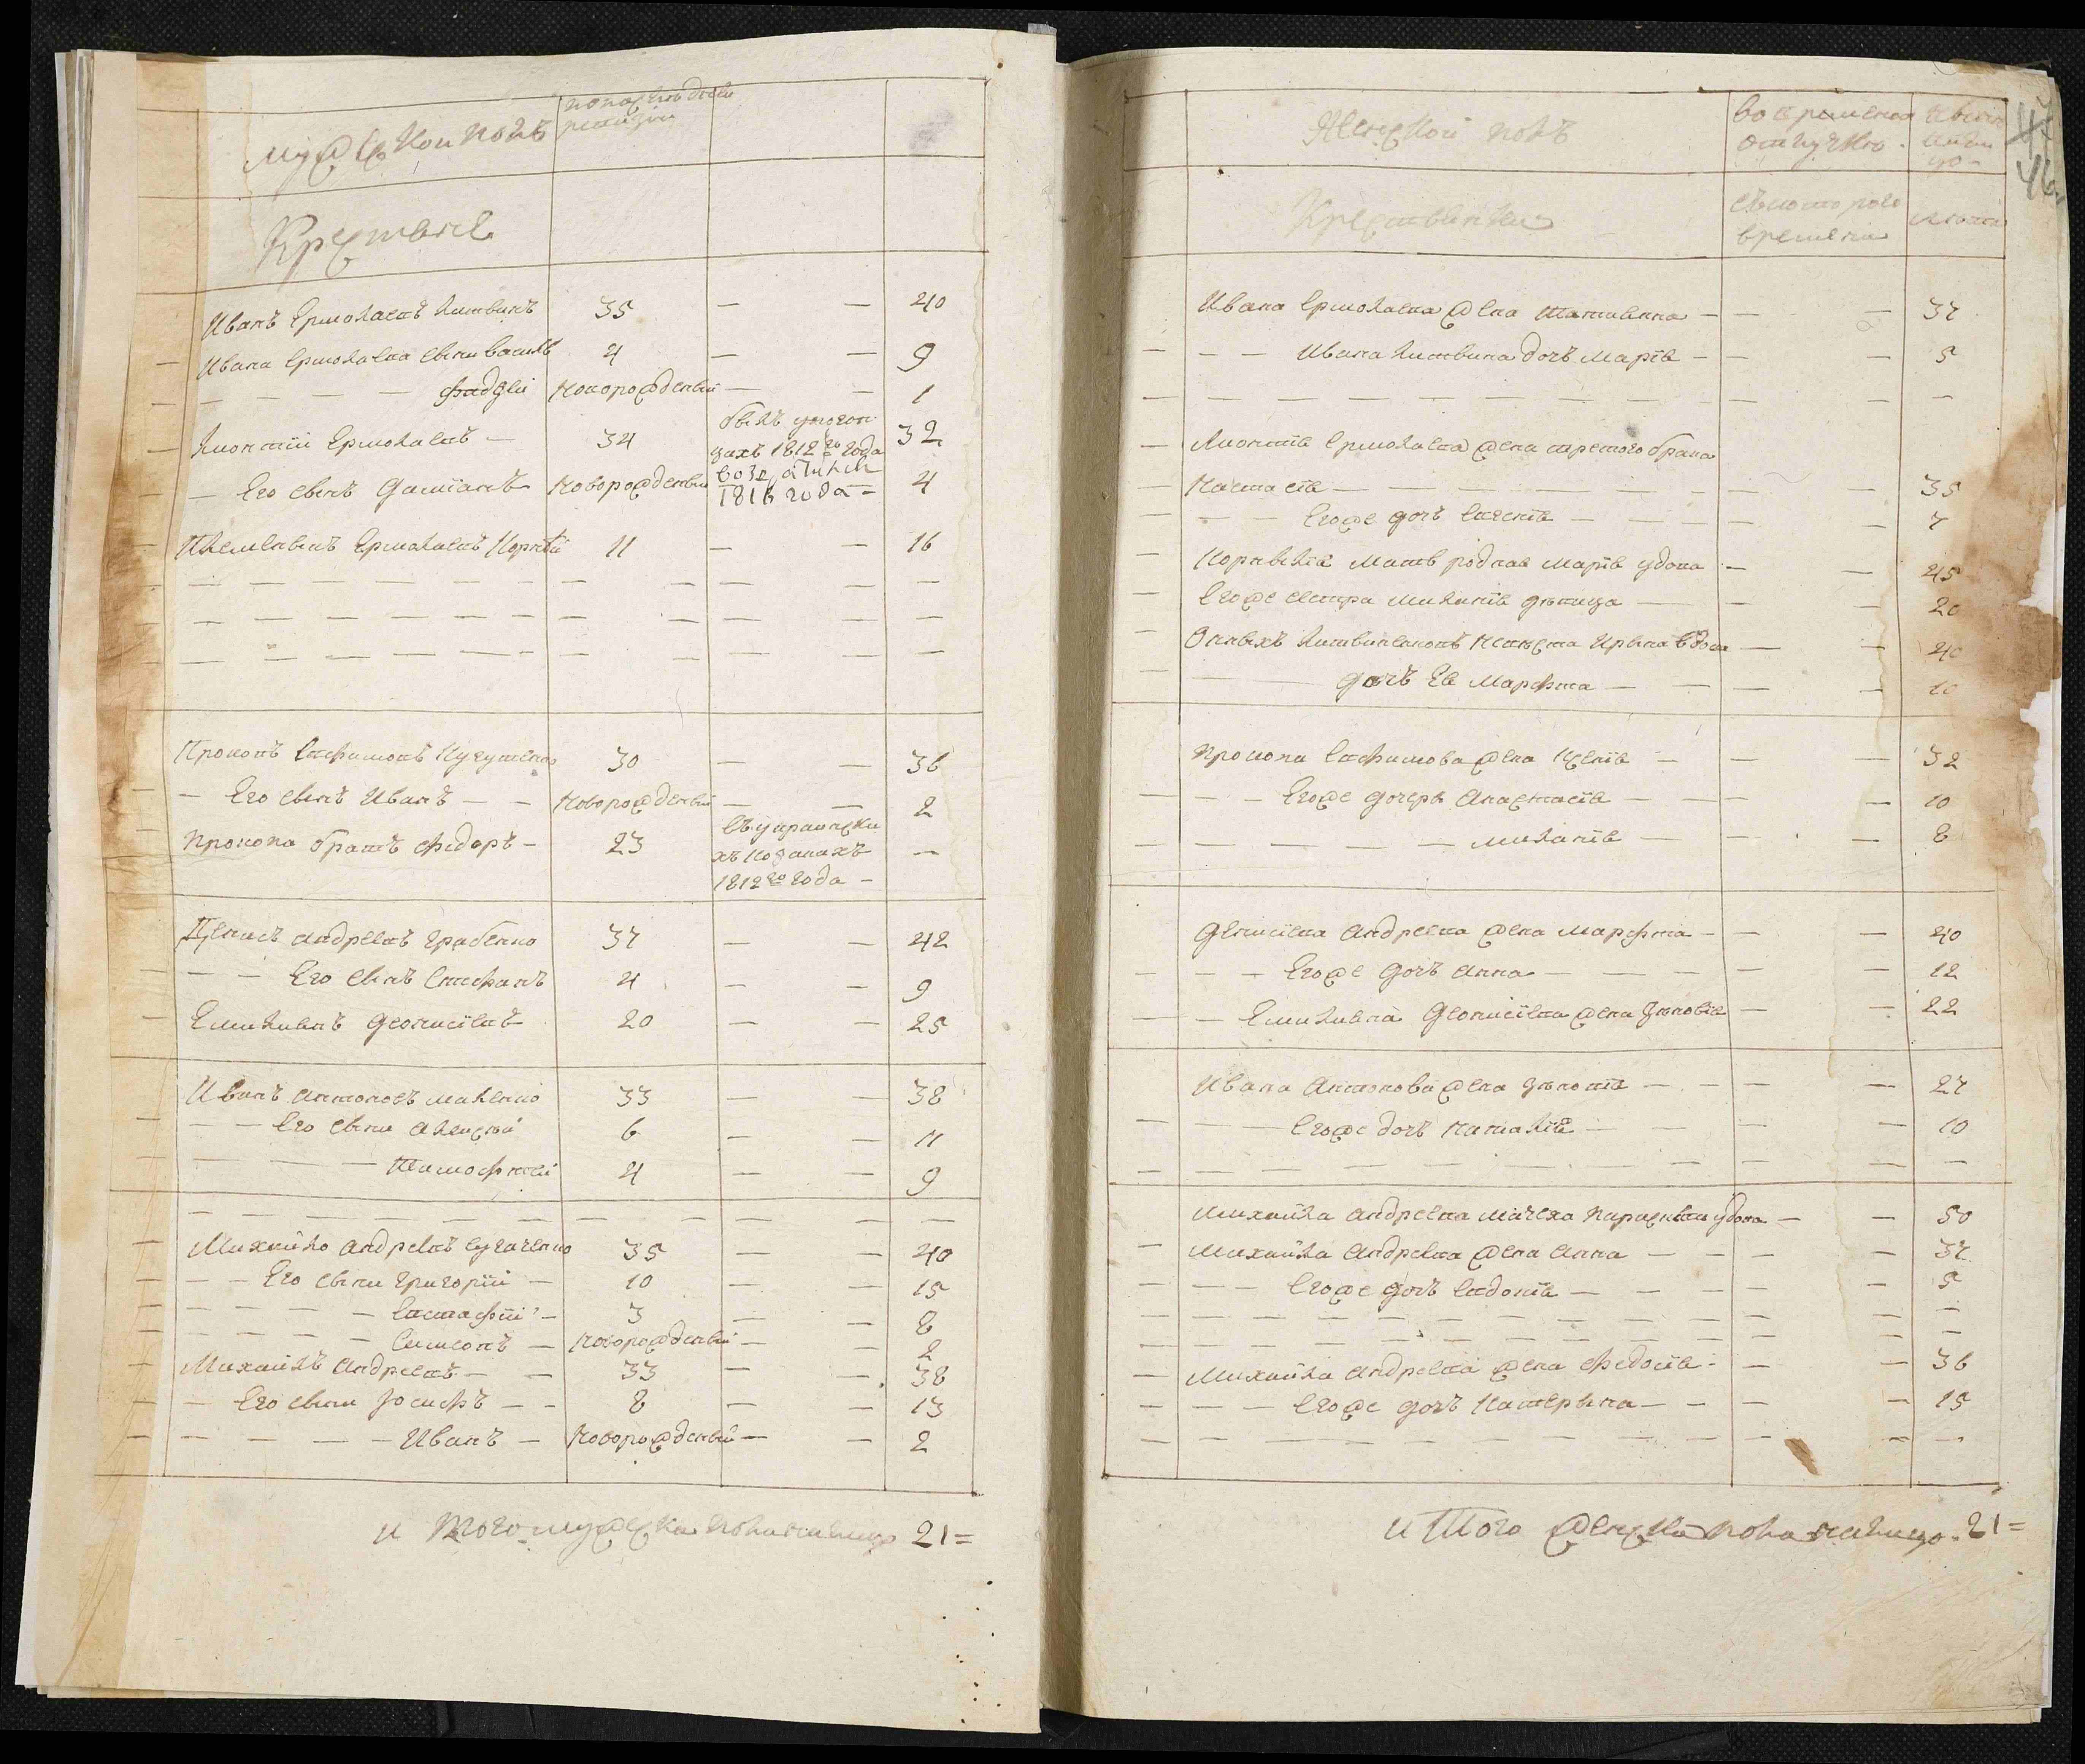 мужеской полъ
по последней
ревизіи
Крестяне
Иванъ Ермолаевъ Литвинъ 35 — — 40
Ивана Ермолаева сыни Василь 4 — — 9
— — — — Фадѣй Новорожденый — — 1
Леонтій Ермолаевъ — 34 былъ у погон 32
цахъ 1812го года
— Его сынъ Даміанъ Новорожденый 4
1816 года —
Ермолаевъ Корнѣй 11 — — 16
— — — — — — — — — —
— — — — — — — — — —
— — — — — — — — — —
Прокопъ Евфимовъ 30 — — 36
— Его сынъ Иванъ — — Новорожденый — — 2
Прокопа братъ Федоръ — 23 въ украински —
хъ козакахъ
1812го года —
Денисъ Андреевъ Грабенко 37 — — 42
— — Его сынъ Стефанъ 4 — — 9
Емилианъ Деонисіевъ 20 — — 25
Иванъ Антоновъ Маленко 33 — — 38
— — Его сыни Алексѣй 6 — — 11
— — — — Тимофѣей 4 — — 9
— — — — — — — — — — —
Михайло Андреевъ 35 — — 40
— — Его сыни Григорій — 10 — — 15
— — — — — Евстафій — 3 — — 8
— — — — — Симеонъ — Новорожденый — — 2
Михайлъ Андреевъ — — 33 — — 38
— Его сыни Іосифъ — — 8 — — 13
— — — — — Иванъ — Новорожденый — — 2
и Того мужеска пола налицо 21=
Женской полъ
во временной
отлучке
46
Крестянки
съ которого
времени
лета
Ивана Ермолаева жена Татианна — — — 37
— — — Ивана Литвина дочь Марія — — — 5
— — — — — — — — — — — —
— Леонтія Ермолаева жена третого брака
Настасія — — — — — — — — 35
— — — Егоже дочъ Евгенія — — — — — 7
— Корнѣлія мать родная Марія удова — — 45
— Егоже сестра Миланія девица — — — 20
— Онныхъ Литвиненковъ невѣста Ирина вдова — — 40
— — — дочъ Ея Марфта — — — — 10
Прокопа Евфимова жена Ксенія — — — 32
— — — Егоже дочерь Анастасія — — — — 10
— — — — — — Миланія — — — 8
Денисіева Андреева жена Марфта — — — 40
— — — Егоже дочъ Анна — — — — — 12
— — Емилиана Деонисіева жена Зѣновія — — 22
Ивана Антонова жена Зѣновія — — — — 27
— — — Егоже дочъ Наталія — — — — 10
— — — — — — — — — — — —
Михайла Андреева мачеха Параскѣви удова — — 50
— Михайла Андреева жена Анна — — — — 37
— — — Егоже дочъ Евдокія — — — — — 5
— — — — — — — — — — — —
— — — — — — — — — — — —
— Михайла Андреева жена Федосія — — — 36
— — — Егоже дочъ Катерина — — — — 15
— — — — — — — — — — — —
и Того женска пола налицо 21=